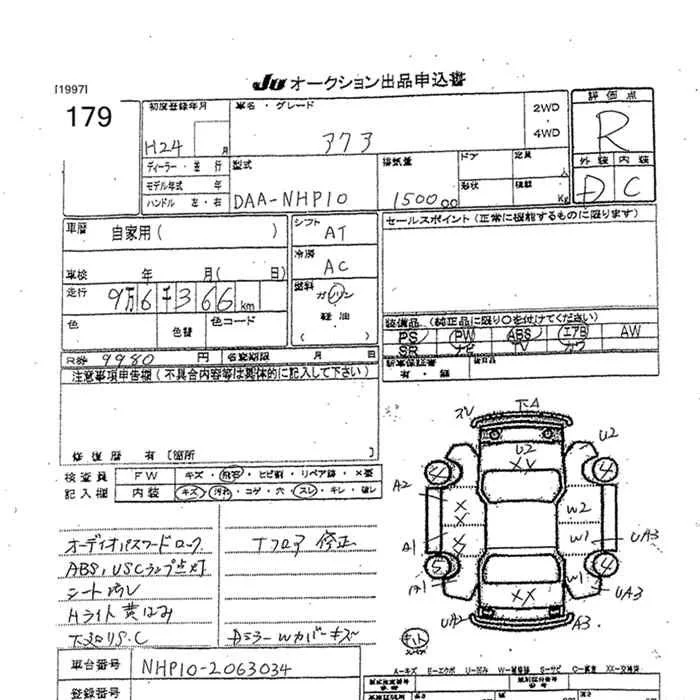 [1997]
JU オークション出品申込書
179
初度登録年月
H24
月
車名・グレード
アクア
2WD
・
4WD
評価点
R
外装 内装
D C
ディーラー・並行
モデル年式 年
ハンドル 左・右
型式
DAA-NHP10
排気量
1500 cc
ドア
定員
人
形状
積載
Kg
車歴
自家用( )
車検 年 月( 日)
走行
9万6千366 km
色
色替
色コード
シフト
AT
冷房
AC
燃料
ガソリン
軽油
( )
セールスポイント(正常に機能するものに限ります)
装備品(純正品に限り○を付けてください)
PS PW ABS エアB AW
SR ナビ TV カワ
有・無
R券 9980 円 名変期限 月 日
注意事項申告欄(不具合内容等は具体的に記入して下さい)
修復歴 有[箇所 ]
検査員
記入欄
FW キズ・飛石・ヒビ割・リペア跡・×要
内装 キズ・汚れ・コゲ・穴・スレ・キレ・破レ
オーディオパスワードロック
ABS, USCランプ点灯
シート汚レ
Hライト黄ばみ
下廻りS.C
Tフロア 修正
DミラーWカバーキズ
スレ
下A
U2
XX
U2
4
4
A2
X
X
X
X
W2
A1
W1
UA3
5
4
A1
W1
UA3
XX
UA2
A3
キット
車台番号 NHP10-2063034
登録番号
A-キズ E-エクボ U-凹み W-補修跡 S-サビ C-腐食 XX-交換済